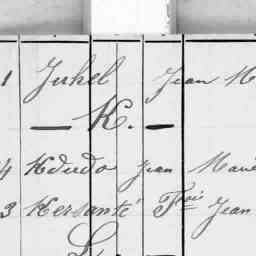 1 Juhel Jean M
— K. —
4 Kdudo Jean Marie
3 Kersanté Fçois Jean
L. —